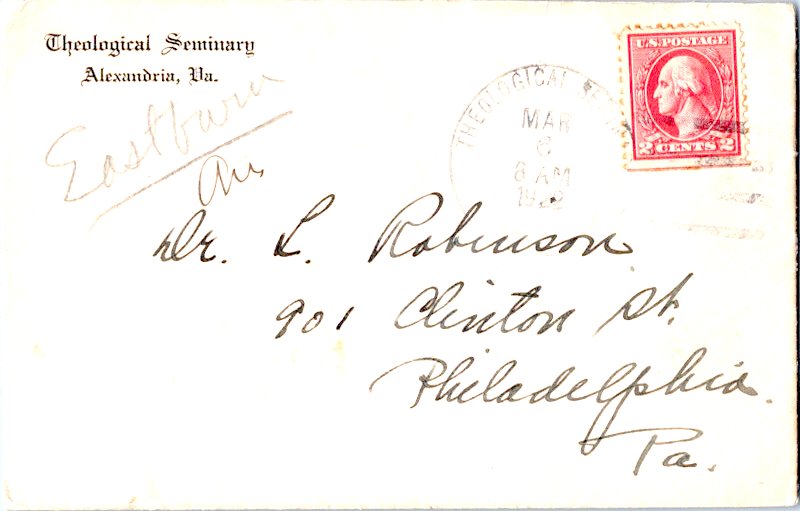 Theological Seminary
Alexandria, Va.
Eastburn
THEOLOGICAL
MAR
6
8 AM
U.S. POSTAGE
2 CENTS 2
Dr. L. Robinson
901 Clinton St.
Philadelphia.
Pa.